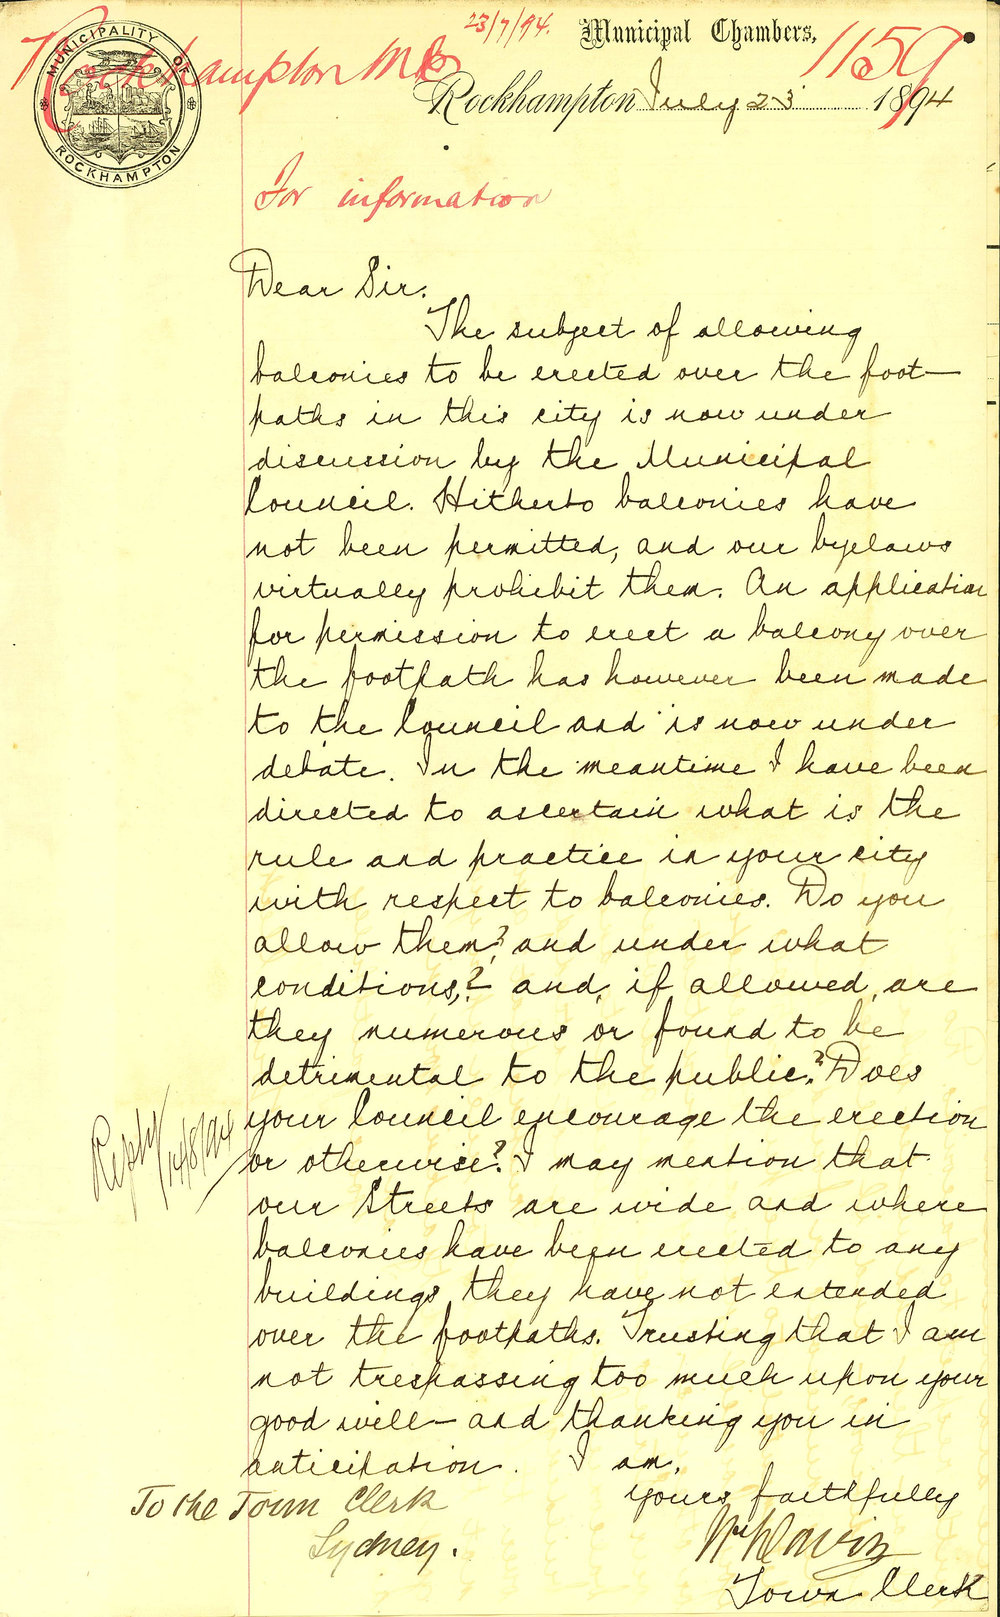 23/7/94.
Municipal Chambers,
1159
Rockhampton
MUNICIPALITY OF ROCKHAMPTON
Rockhampton July 23 1894
For information
Dear Sir.
The subject of allowing
balconies to be erected over the foot-
paths in this city is now under
discussion by the Municipal
Council. Hitherto balconies have
not been permitted, and our byelaws
virtually prohibit them. An application
for permission to erect a balcony over
the footpath has however been made
to the Council and is now under
debate. In the meantime I have been
directed to ascertain what is the
rule and practice in your city
with respect to balconies. Do you
allow them? and under what
conditions,? and, if allowed, are
they numerous or found to be
detrimental to the public? Does
your Council encourage the erection
or otherwise? I may mention that
our Streets are wide and where
balconies have been erected to any
buildings, they have not extended
over the footpaths. Trusting that I am
not trespassing too much upon your
good will - and thanking you in
anticipation. I am,
yours faithfully
Town Clerk
To the Town Clerk
Sydney.
Reply 14/8/94